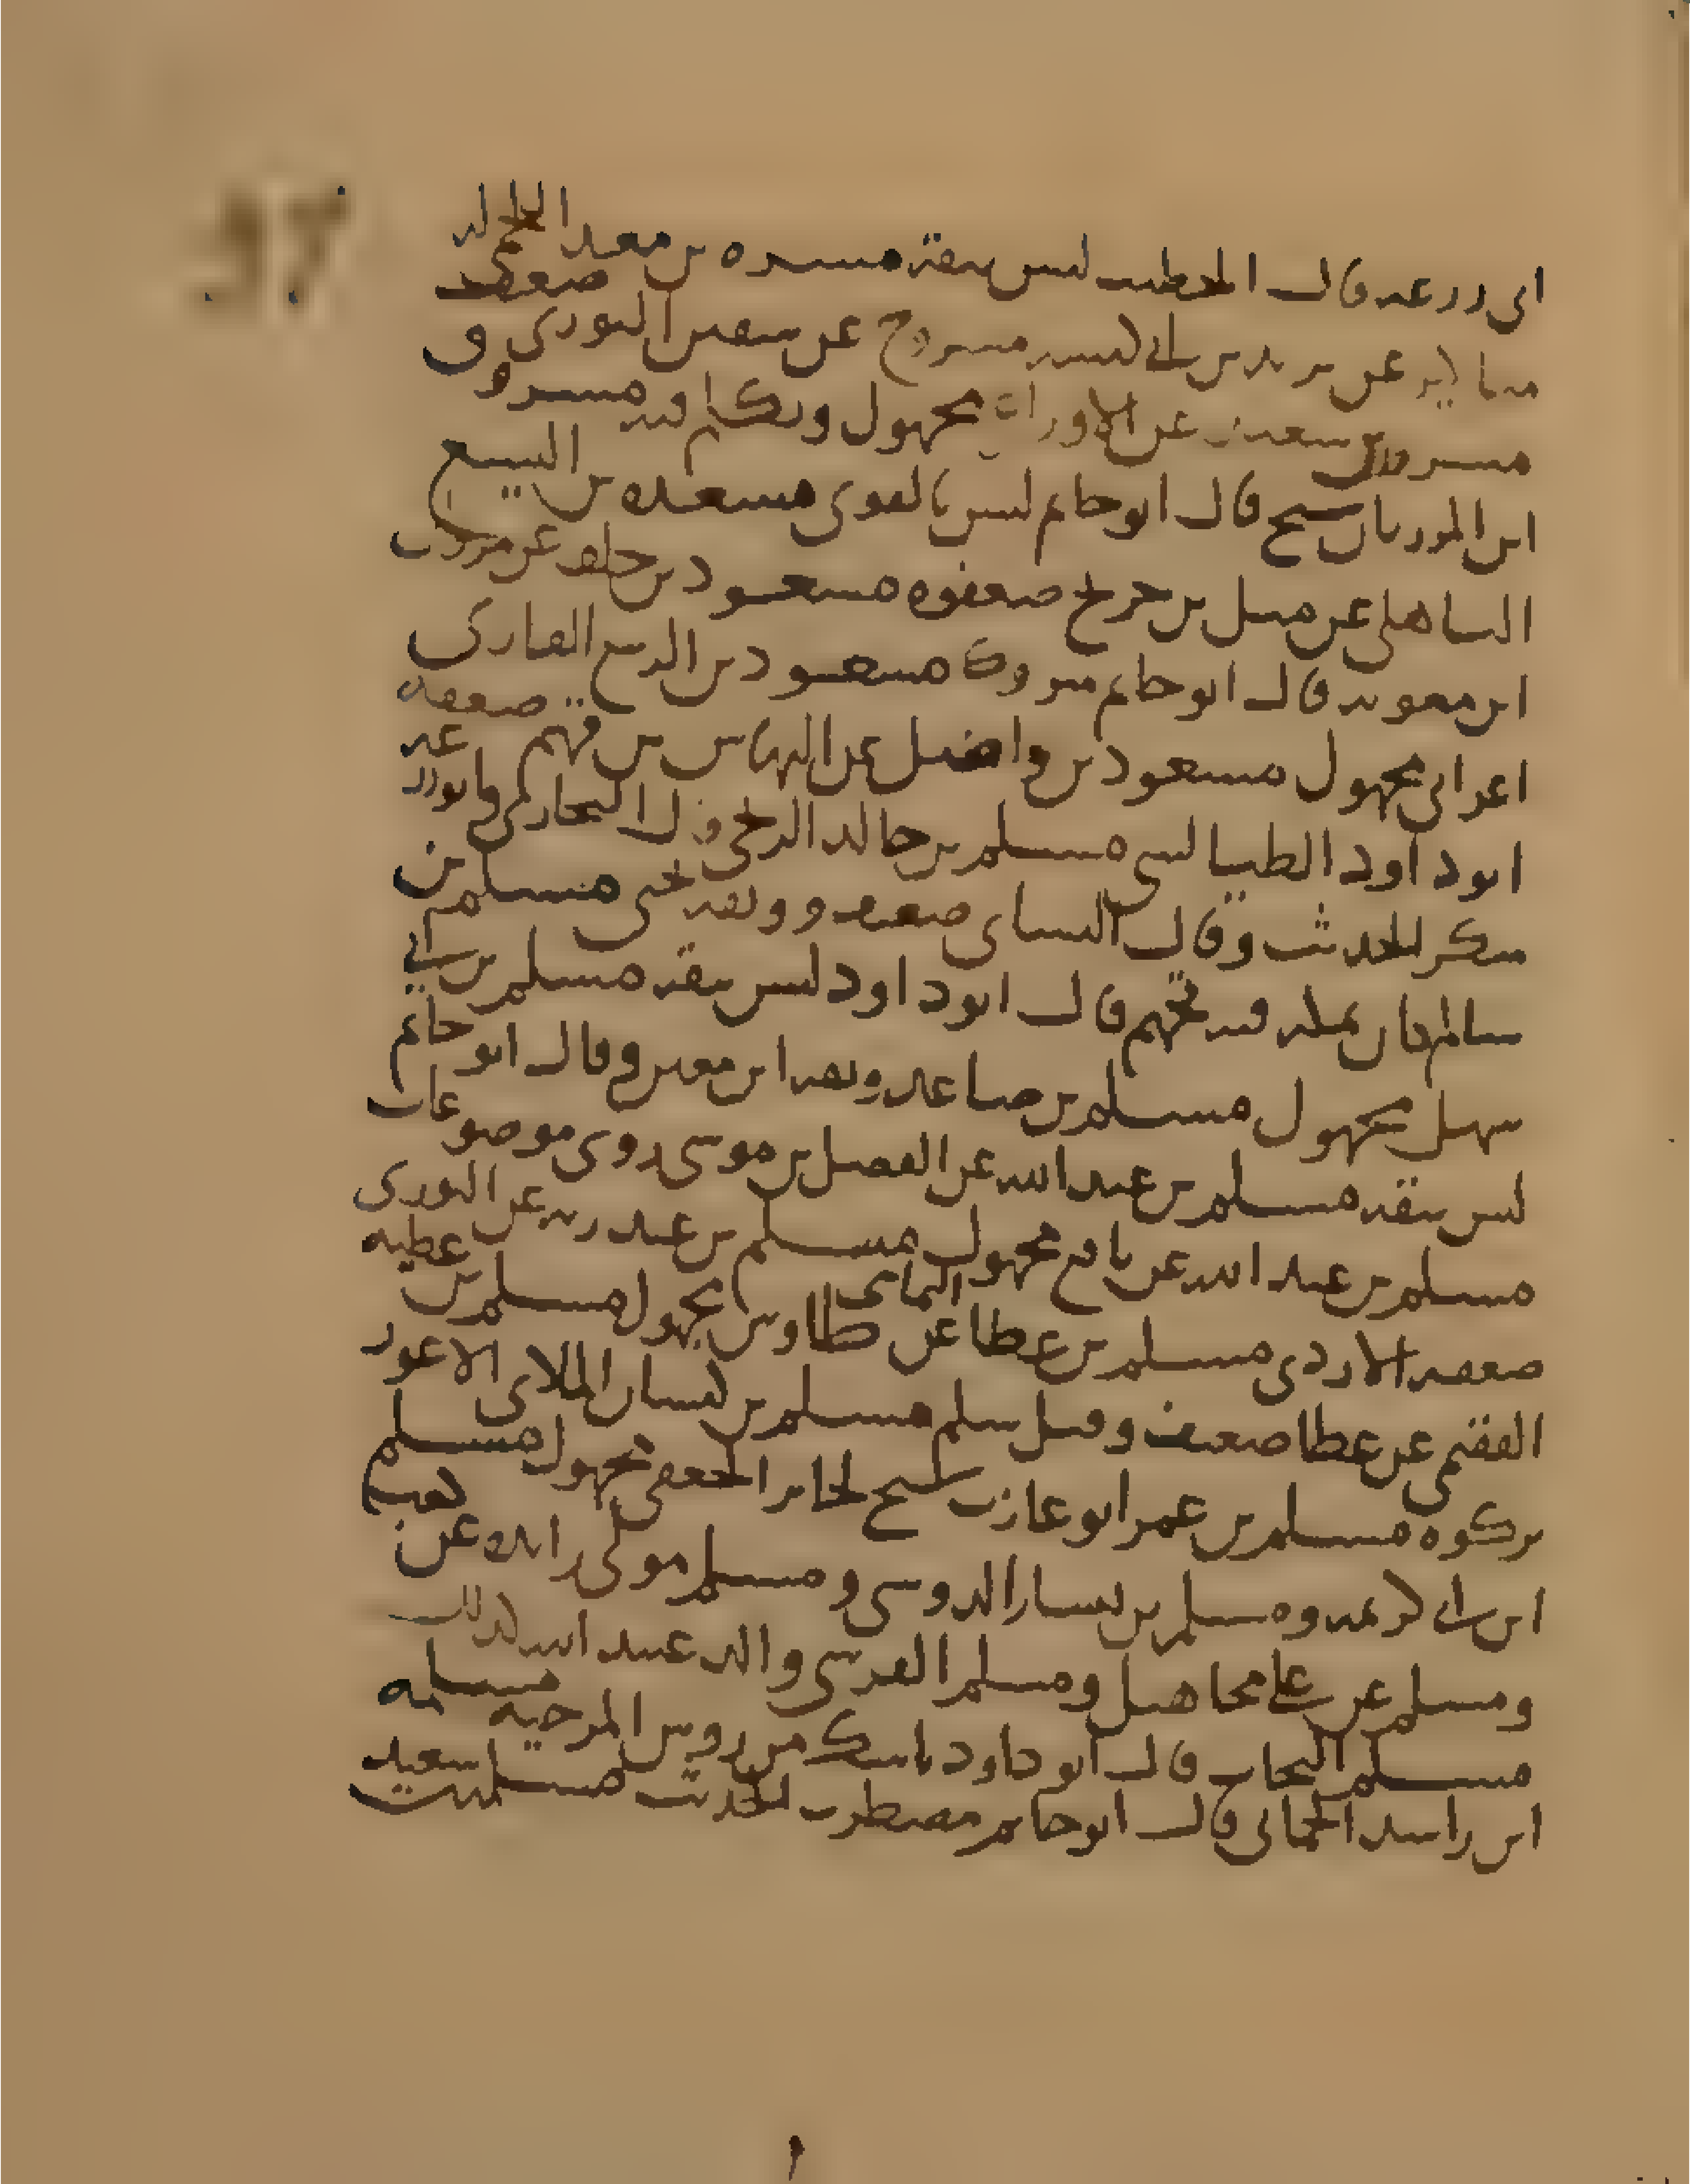 ابى زرعه قال الخطيب ليس بثقة مسره بن معبد اللخمى له
مناكير عن يزيد بن ابى كبشه مسروح عن سفين الثورى ضعيف و
مسروق بن سعيد عن الاوزاعى مجهول وتكلم فيه مسروق
ابن المرزبان شيخ قال ابو حاتم ليس بالقوى مسعده بن اليسع
الباهلى عن جريج ضعفوه مسعود بن خلف عن مروان
ابن معويه قال ابو حاتم متروك مسعود بن الربيع القارى
اعرابى مجهول مسعود بن واصل عن النهاس بن قهم ضعفه
ابو داود الطيالسى مسلم بن خالد الزنجى قال البخارى وابو زرعه
منكر الحديث وقال النسائى ضعيف ووثقه يحيى مسلم بن
سالم كان بمكه فيه تجهم قال ابو داود ليس بثقه مسلم بن ابى
سهل مجهول مسلم بن صاعد وثقه ابن معين وقال ابو حاتم
ليس بثقه مسلم بن عبد الله عن الفضل بن موسى روى موضوعات
مسلم بن عبد الله عن نافع مجهول مسلم بن عبد ربه عن الثورى
ضعفه الازدى مسلم بن عطا عن طاوس اليمانى مجهول مسلم بن عطيه
الفقيمى عن عطا ضعيف وقيل سلم مسلم بن كيسان الملائى الاعور
تركوه مسلم بن عمر ابو عازب شيخ لجابر الجعفى مجهول مسلم
ابن ابى كريمه ومسلم بن يسار الدوسى ومسلم مولى زائده عن
ومسلم عن على مجاهيل ومسلم القرشى والد عبيد الله كذلك
مسلم النحات قال ابو داود من روس المرجيه مسلمه
ابن راشد الحمانى قال ابو حاتم مضطرب الحديث مسلمه بن سعيد